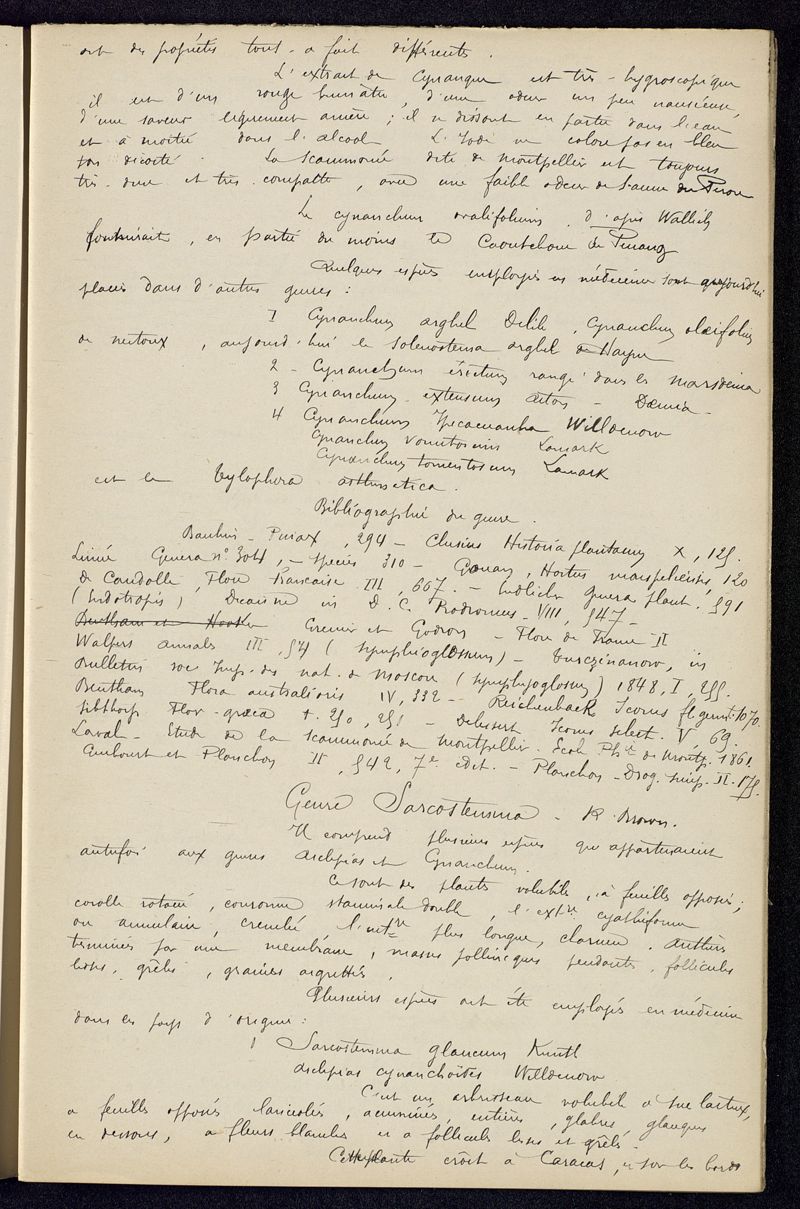 ont des propriétés tout-a fait différentes.
L'extrait de Cynanque est très-hygroscopique
il est d'un rouge brunâtre, d'une odeur un peu nauséeuse,
d'une saveur légèrement amère ; il se dissout en partie dans l'eau
et à moitié dans l'alcool. L'Iode ne colore pas en bleu
son décocté. La Scammonée dite de montpellier est toujours
très-dure et très-compacte, avec une faible odeur de baume du Perou
Le cynanchum ovalifolium, d'après Wallich
fournirait, en partie du moins le Caoutchouc de Pinang
Quelques espèces employées en médecine sont aujourd'hui
placées dans d'autres genres :
1 Cynanchum arghel Delile, Cynanchum oleifolium
de nectoux, aujourd'hui le Solenostema arghel de Hayne
2 - Cynanchum erectum rangé dans les marsdenia
3 Cynanchum extensum Aiton - Dœmia -
4 Cynanchum Ipecacuanha Willdenow
Cynanchum Vomitorium Lamark
Cynanchum tomentosum Lamark
est le tylophora asthmatica.
Bibliographie du genre.
Bauhin - Pinax, 294 - Clusius Historia plantarum X, 125.
Linné Genera n° 304, - species 310 - Gouan, Hortus monspeliensis, 120
de Candolle, Flore Française III, 667. - Endlicher genera plant. 591
(Endotropis) Decaisne in D.C. Prodromus - VIII, 547 -
Bentham et Hooker Grenier et Godron - Flore de France II
Walpers annales III, 54 (symphyoglossum) - turczaninow, in
Bulletin soc Imp. des nat. de Moscou (symphyoglossum) 1848, I, 255.
Bentham Flora australiensis IV, 332 - Reichenback Icones fl. germ. t. 1070.
sibthorp Flor-græca t. 250, 251 - Delessert Icones select. V, 69.
Laval - Etude de la scammonée de montpellier. Ecole Phie de Montp. 1861.
Guibourt et Planchon III, 542, 7e edit. - Planchon - Drog. simp. II. 175.
Genre Sarcostemma - R. Brown.
Il comprend plusieurs espèces qui appartenaient
autrefois aux genres Asclepias et Cynanchum.
Ce sont des plantes volubiles, à feuilles opposées ;
corolle rotacée, couronne staminale double, l'extre cyathiforme
ou annulaire, crenelée, l'intre plus longue, charnue. Anthères
terminées par une membrane, masses polliniques pendantes, follicules
lisses, grêles, graines aigrettées.
Plusieurs espèces ont été employées en médecine
dans les pays d'origine :
1 Sarcostemma glaucum Kunth
Asclepias cynanchoïdes Willdenow
C'est un arbrisseau volubile à suc laiteux,
a feuilles opposées lanceolées, acuminées, entières, glabres, glauques
en dessous, à fleurs blanches et a follicules lisses et grêles -
Cette plante croît à Caracas, et sur les bords